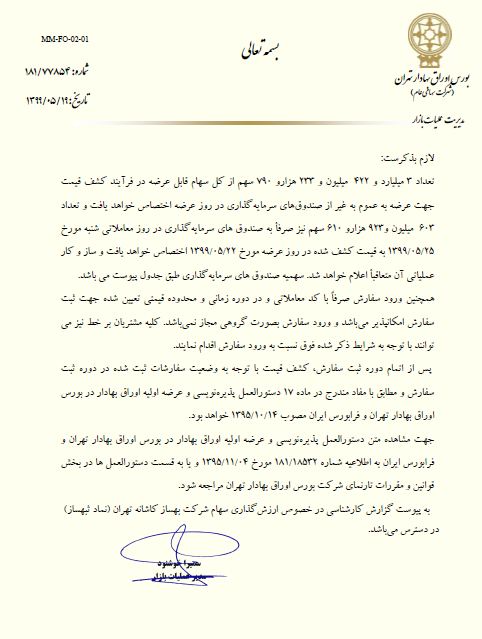 MM-FO-02-01
بسمه تعالی
شماره: ۱۸۱/۷۷۸۵۴
تاریخ: ۱۳۹۹/۰۵/۱۹
بورس اوراق بهادار تهران
(شرکت سهامی عام)
مدیریت عملیات بازار
لازم بذکرست:
تعداد ۳ میلیارد و ۴۲۲ میلیون و ۲۳۳ هزارو ۷۹۰ سهم از کل سهام قابل عرضه در فرآیند کشف قیمت
جهت عرضه به عموم به غیر از صندوق‌های سرمایه‌گذاری در روز عرضه اختصاص خواهد یافت و تعداد
۶۰۳ میلیون و۹۲۳ هزارو ۶۱۰ سهم نیز صرفاً به صندوق های سرمایه‌گذاری در روز معاملاتی شنبه مورخ
۱۳۹۹/۰۵/۲۵ به قیمت کشف شده در روز عرضه مورخ ۱۳۹۹/۰۵/۲۲ اختصاص خواهد یافت و ساز و کار
عملیاتی آن متعاقباً اعلام خواهد شد. سهمیه صندوق های سرمایه‌گذاری طبق جدول پیوست می باشد.
همچنین ورود سفارش صرفاً با کد معاملاتی و در دوره زمانی و محدوده قیمتی تعیین شده جهت ثبت
سفارش امکانپذیر می‌باشد و ورود سفارش بصورت گروهی مجاز نمی‌باشد. کلیه مشتریان بر خط نیز می
توانند با توجه به شرایط ذکر شده فوق نسبت به ورود سفارش اقدام نمایند.
پس از اتمام دوره ثبت سفارش، کشف قیمت با توجه به وضعیت سفارشات ثبت شده در دوره ثبت
سفارش و مطابق با مفاد مندرج در ماده ۱۷ دستورالعمل پذیره‌نویسی و عرضه اولیه اوراق بهادار در بورس
اوراق بهادار تهران و فرابورس ایران مصوب ۱۳۹۵/۱۰/۱۴ خواهد بود.
جهت مشاهده متن دستورالعمل پذیره‌نویسی و عرضه اولیه اوراق بهادار در بورس اوراق بهادار تهران و
فرابورس ایران به اطلاعیه شماره ۱۸۱/۱۸۵۳۲ مورخ ۱۳۹۵/۱۱/۰۴ و یا به قسمت دستورالعمل ها در بخش
قوانین و مقررات تارنمای شرکت بورس اوراق بهادار تهران مراجعه شود.
به پیوست گزارش کارشناسی در خصوص ارزش‌گذاری سهام شرکت بهساز کاشانه تهران (نماد ثبهساز)
در دسترس می‌باشد.
سمیرا خوشنود
مدیر عملیات بازار